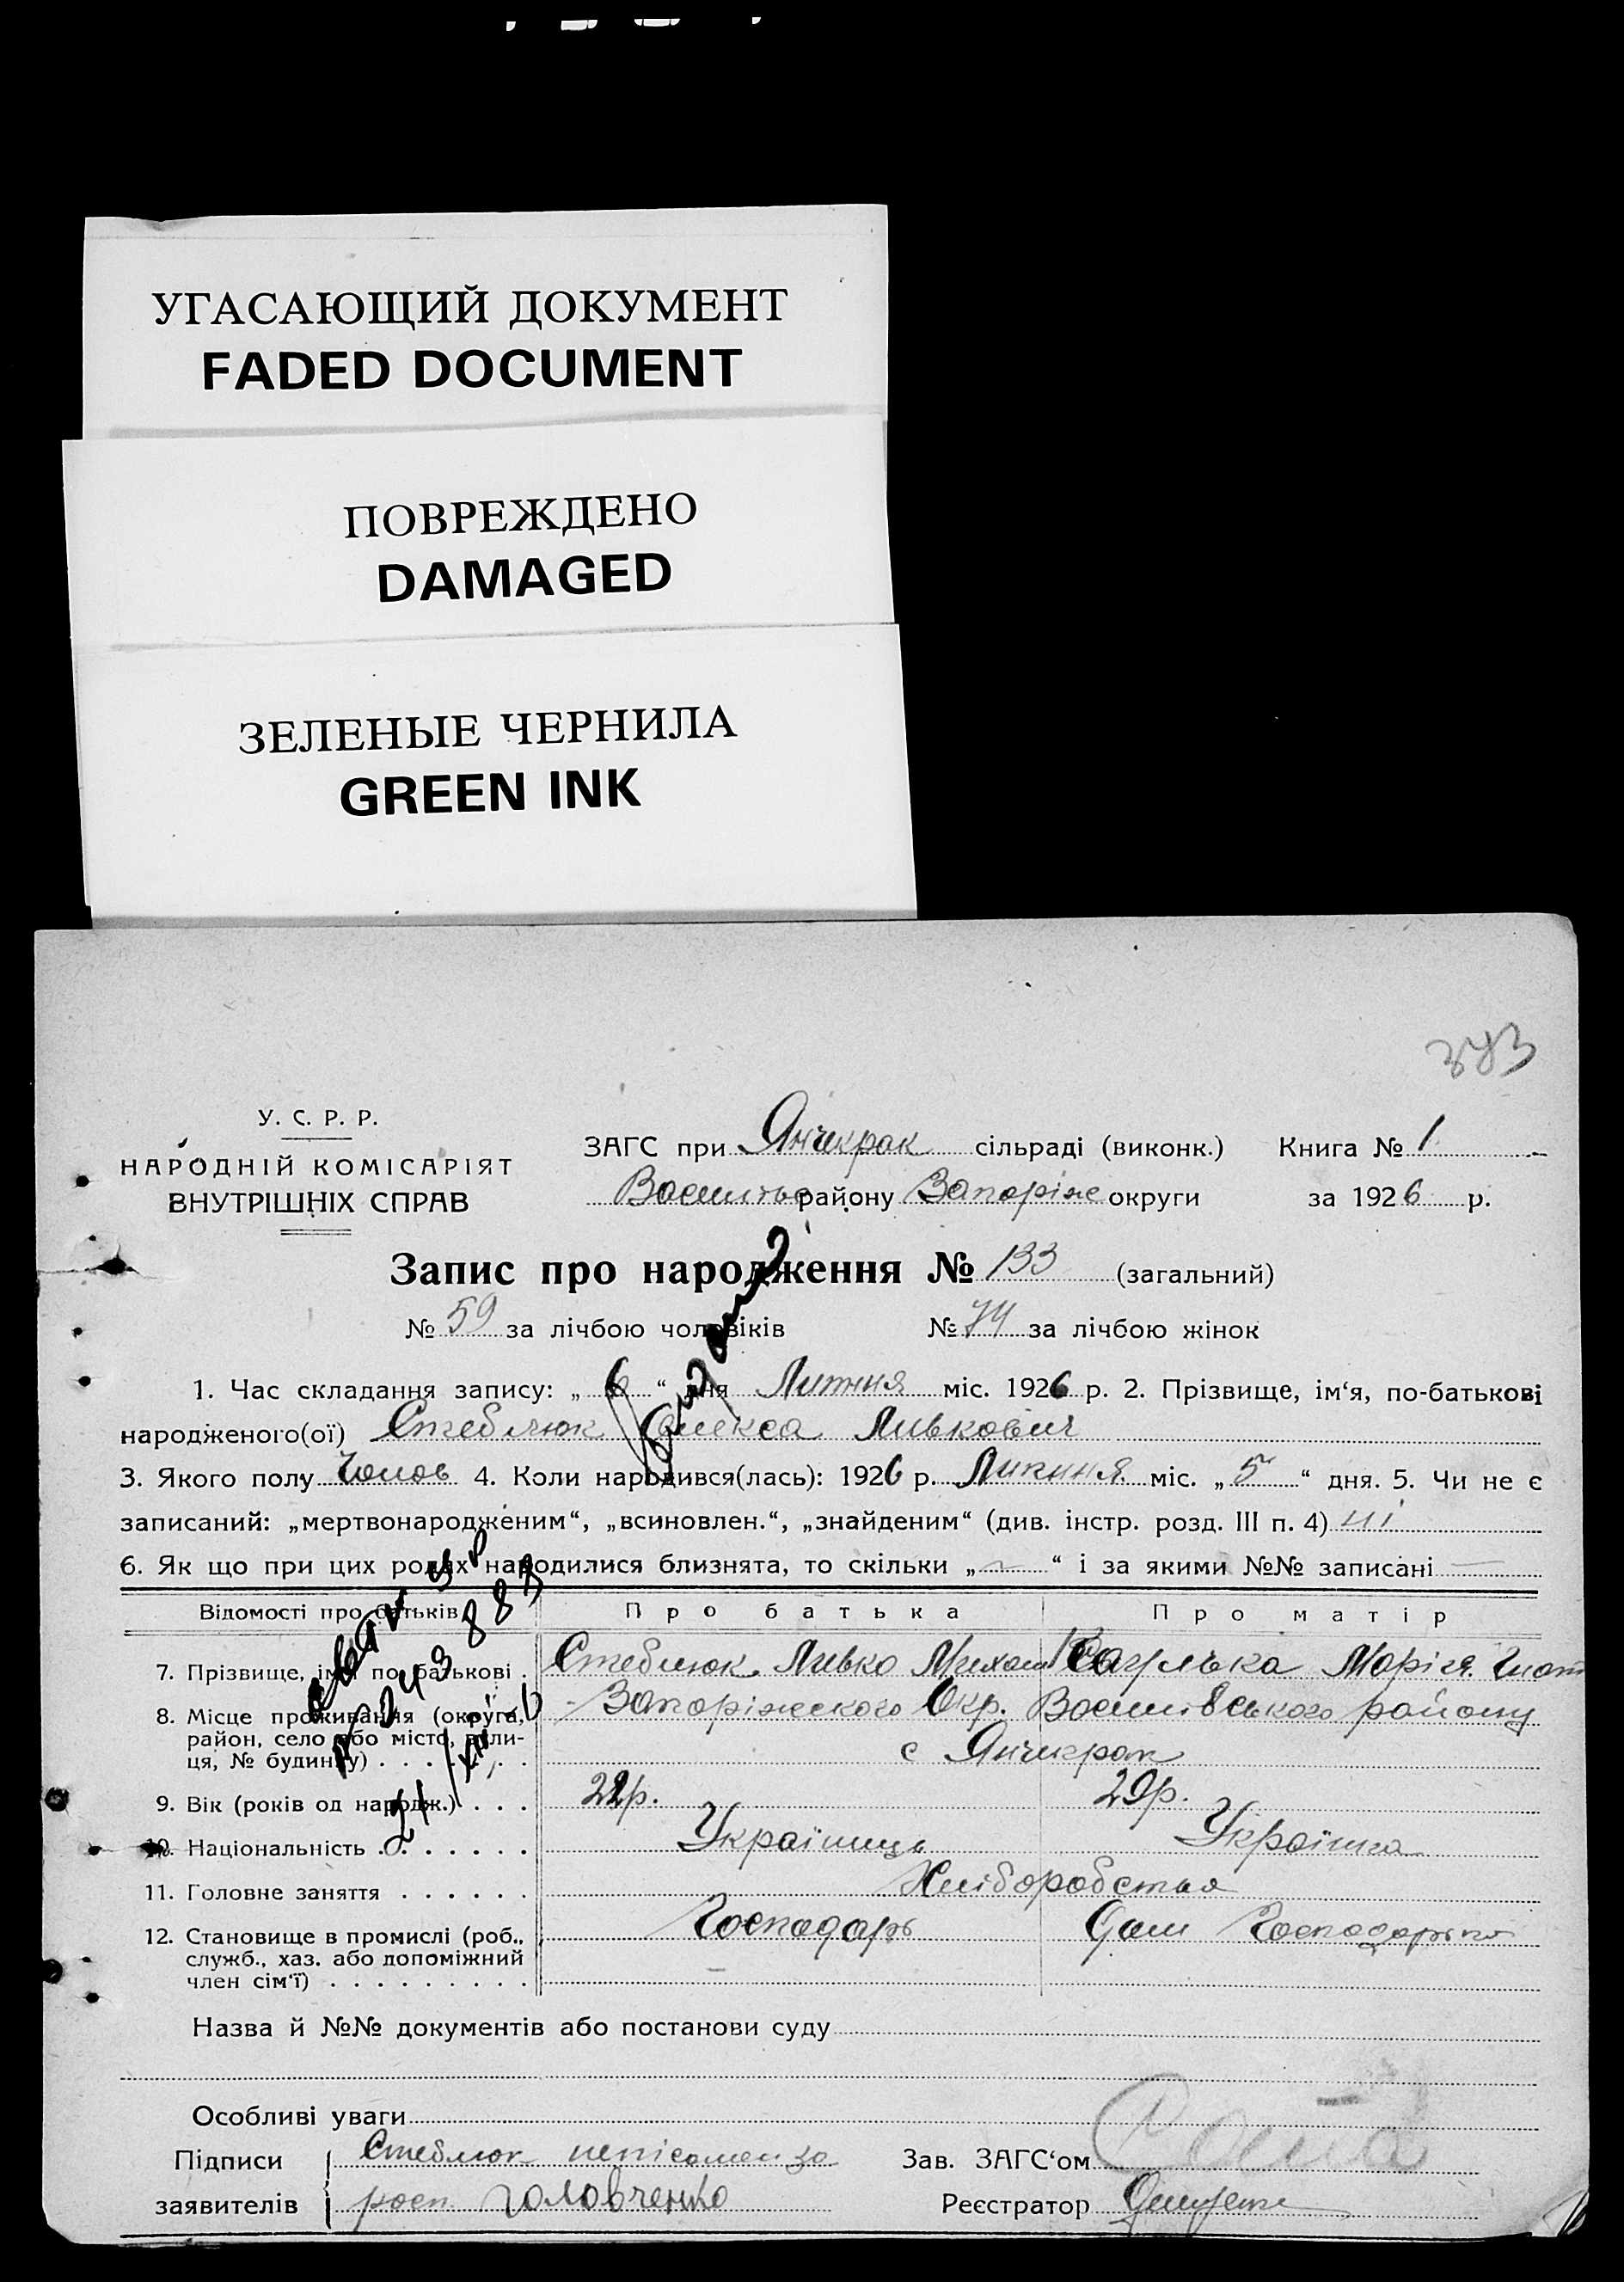 УГАСАЮЩИЙ ДОКУМЕНТ
FADED DOCUMENT
ПОВРЕЖДЕНО
DAMAGED
ЗЕЛЕНЫЕ ЧЕРНИЛА
GREEN INK
У. С. Р. Р.
НАРОДНІЙ КОМІСАРІЯТ
ВНУТРІШНІХ СПРАВ
ЗАГС при Янчекрак сільраді (виконк.) Книга № 1
району Запоріж округи за 1926 р.
Запис про народження № 133 (загальний)
№ 59 за лічбою чоловіків № 74 за лічбою жінок
1. Час складання запису: „ 6 “ дня Липня міс. 1926 р. 2. Прізвище, ім‘я, по-батькові
народженого(ої) Стеблюк Олекса Ливкович
3. Якого полу Чолов 4. Коли народився(лась): 1926 р. Липня міс. „ 5 “ дня. 5. Чи не є
записаний: „мертвонародженим“, „всиновлен.“, „знайденим“ (див. інстр. розд. III п. 4) ні
6. Як що при цих родах народилися близнята, то скільки „ — “ і за якими №№ записані —
Відомості про батьків Про батька Про матір
7. Прізвище, ім‘я по-батькові . Стеблюк Ливко Михаил Марія Гнат
8. Місце проживання (округа, Запоріжского Окр. Василівського району
район, село або місто, вули-
ця, № будинку) . . . . . . с Янчекрак
9. Вік (років од народж.) . . . 22р. 20р.
10. Національність . . . . . . . Українць Українка
11. Головне заняття . . . . . . Хліборобства
12. Становище в промислі (роб., Господарь Дом Господарька
служб., хаз. або допоміжний
член сім‘ї) . . . . . . . . .
Назва й №№ документів або постанови суду
Особливі уваги
Підписи Стеблюк непісомен за Зав. ЗАГС‘ом
заявителів росп Головченко Реєстратор